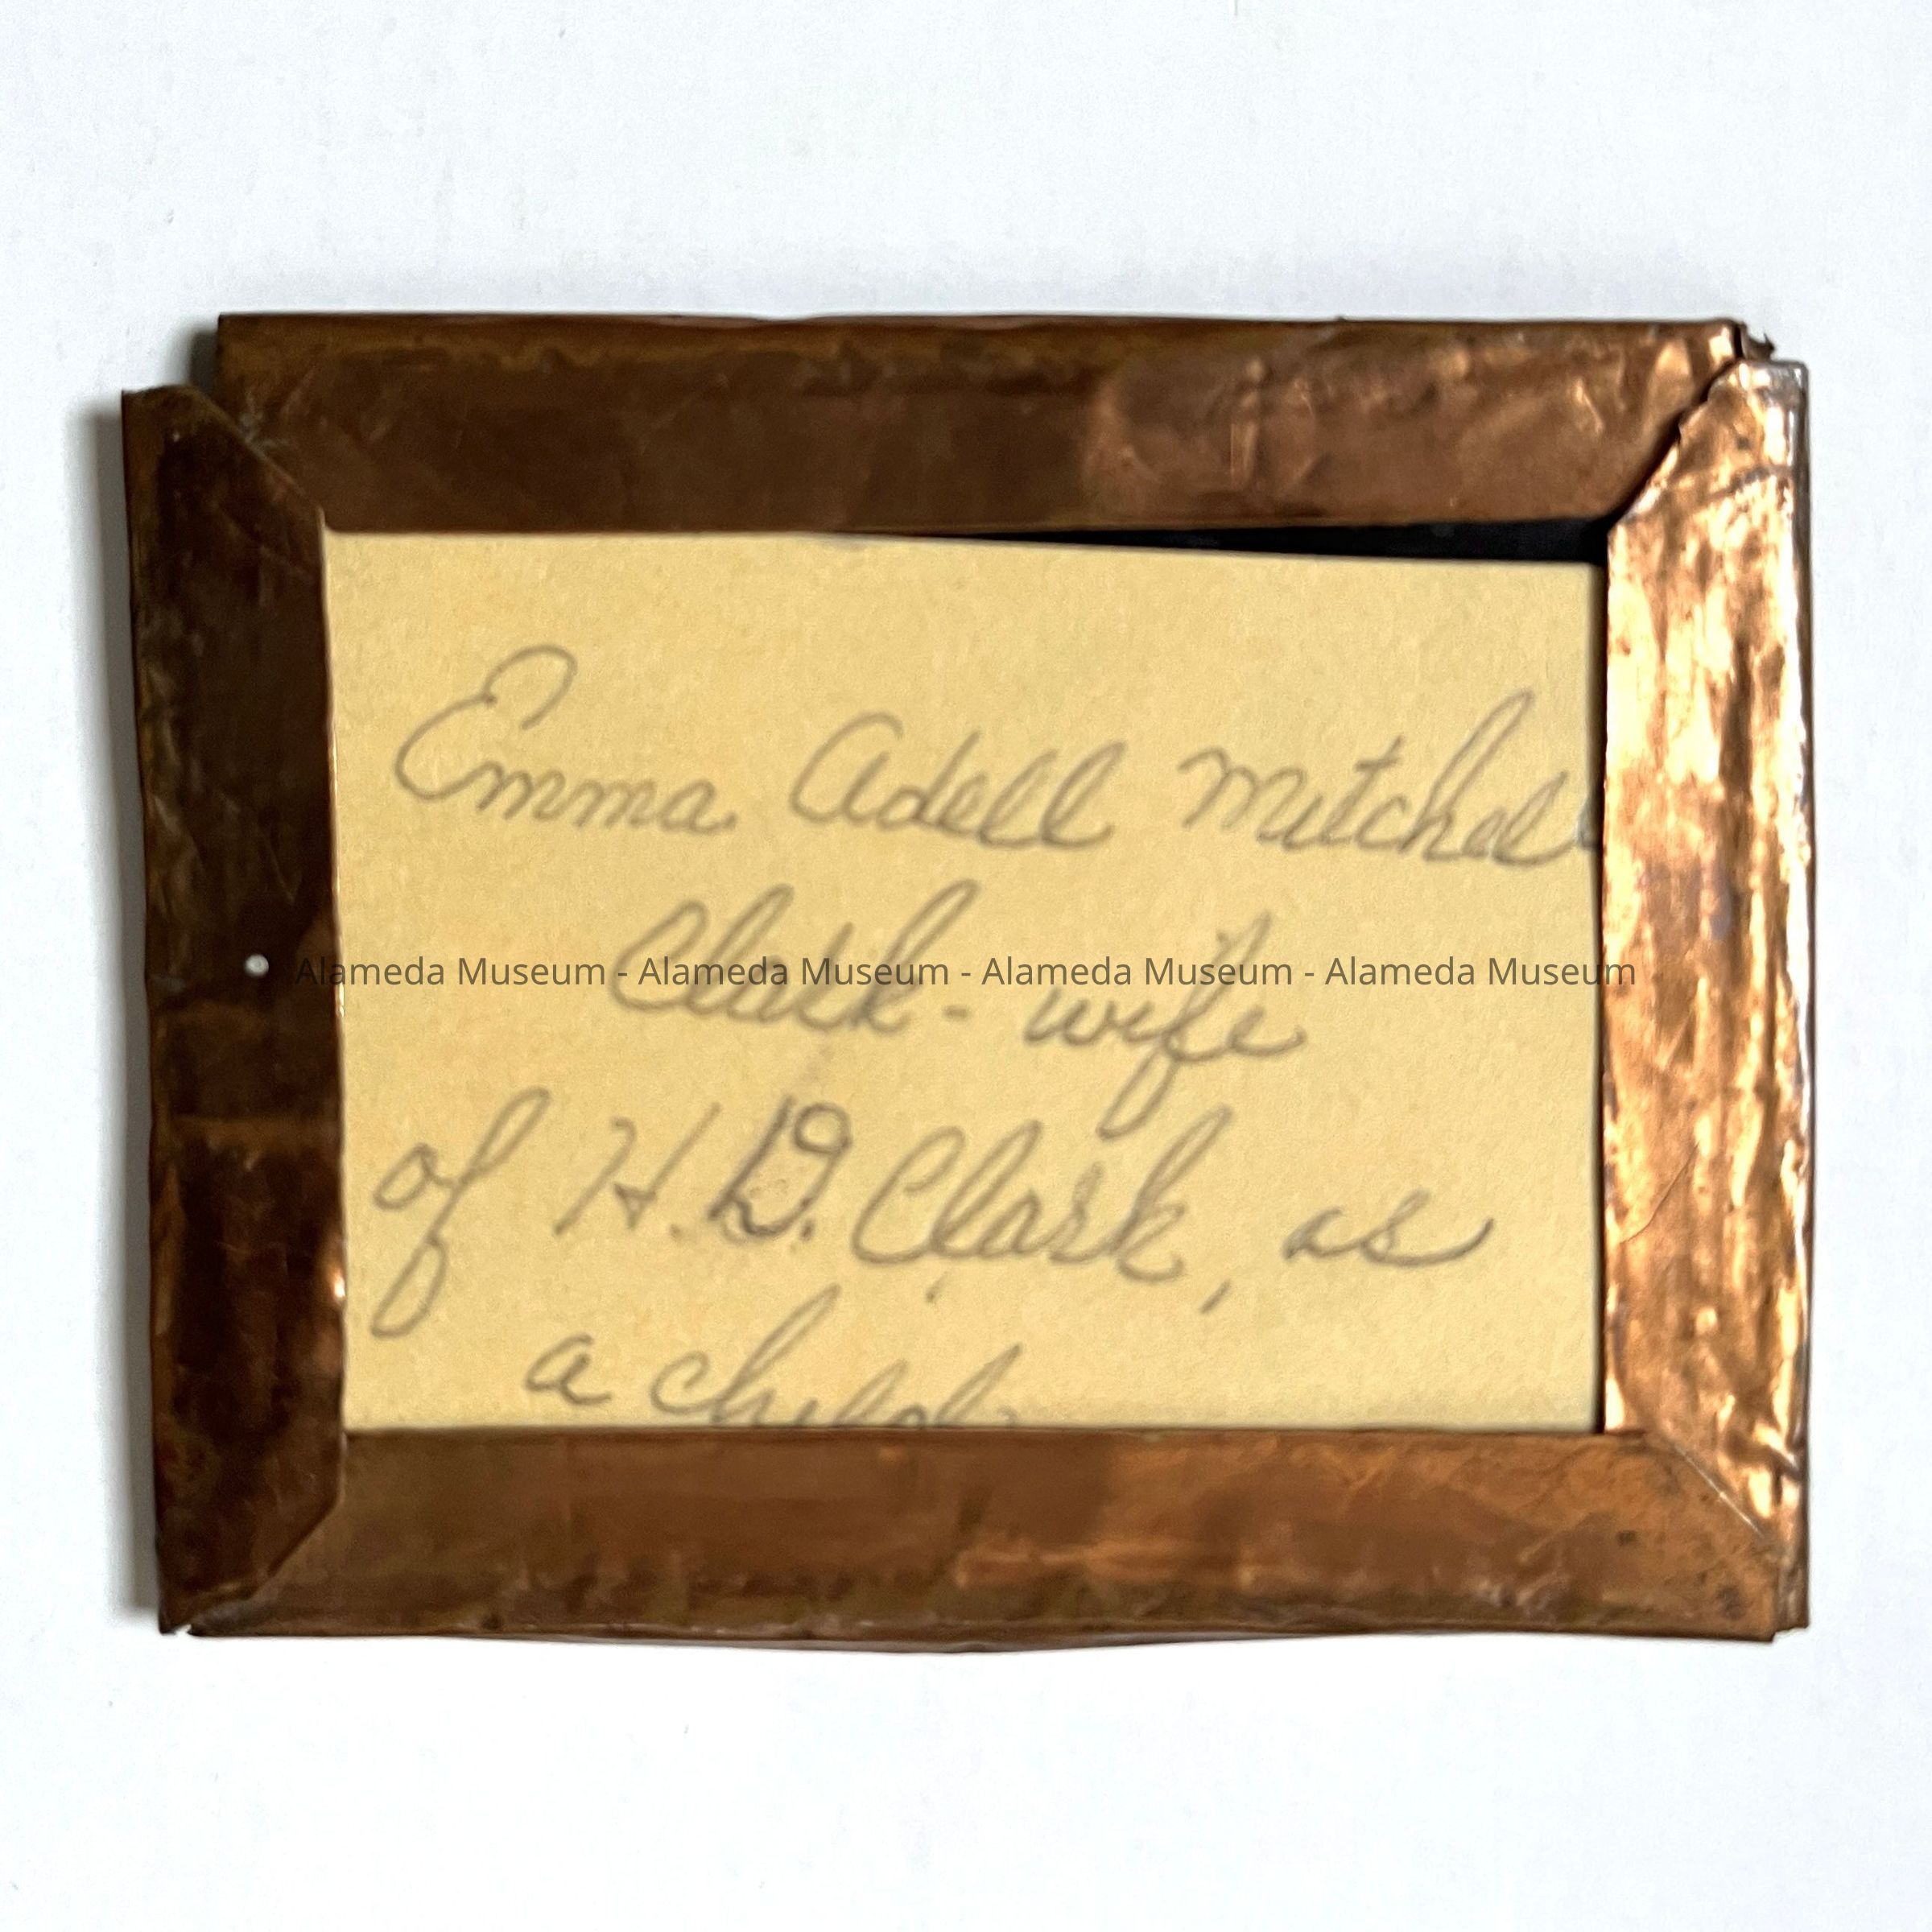 Emma Adell Mitchell
Clark - wife
Alameda Museum - Alameda Museum - Alameda Museum - Alameda Museum
of H.D. Clark, as
a child